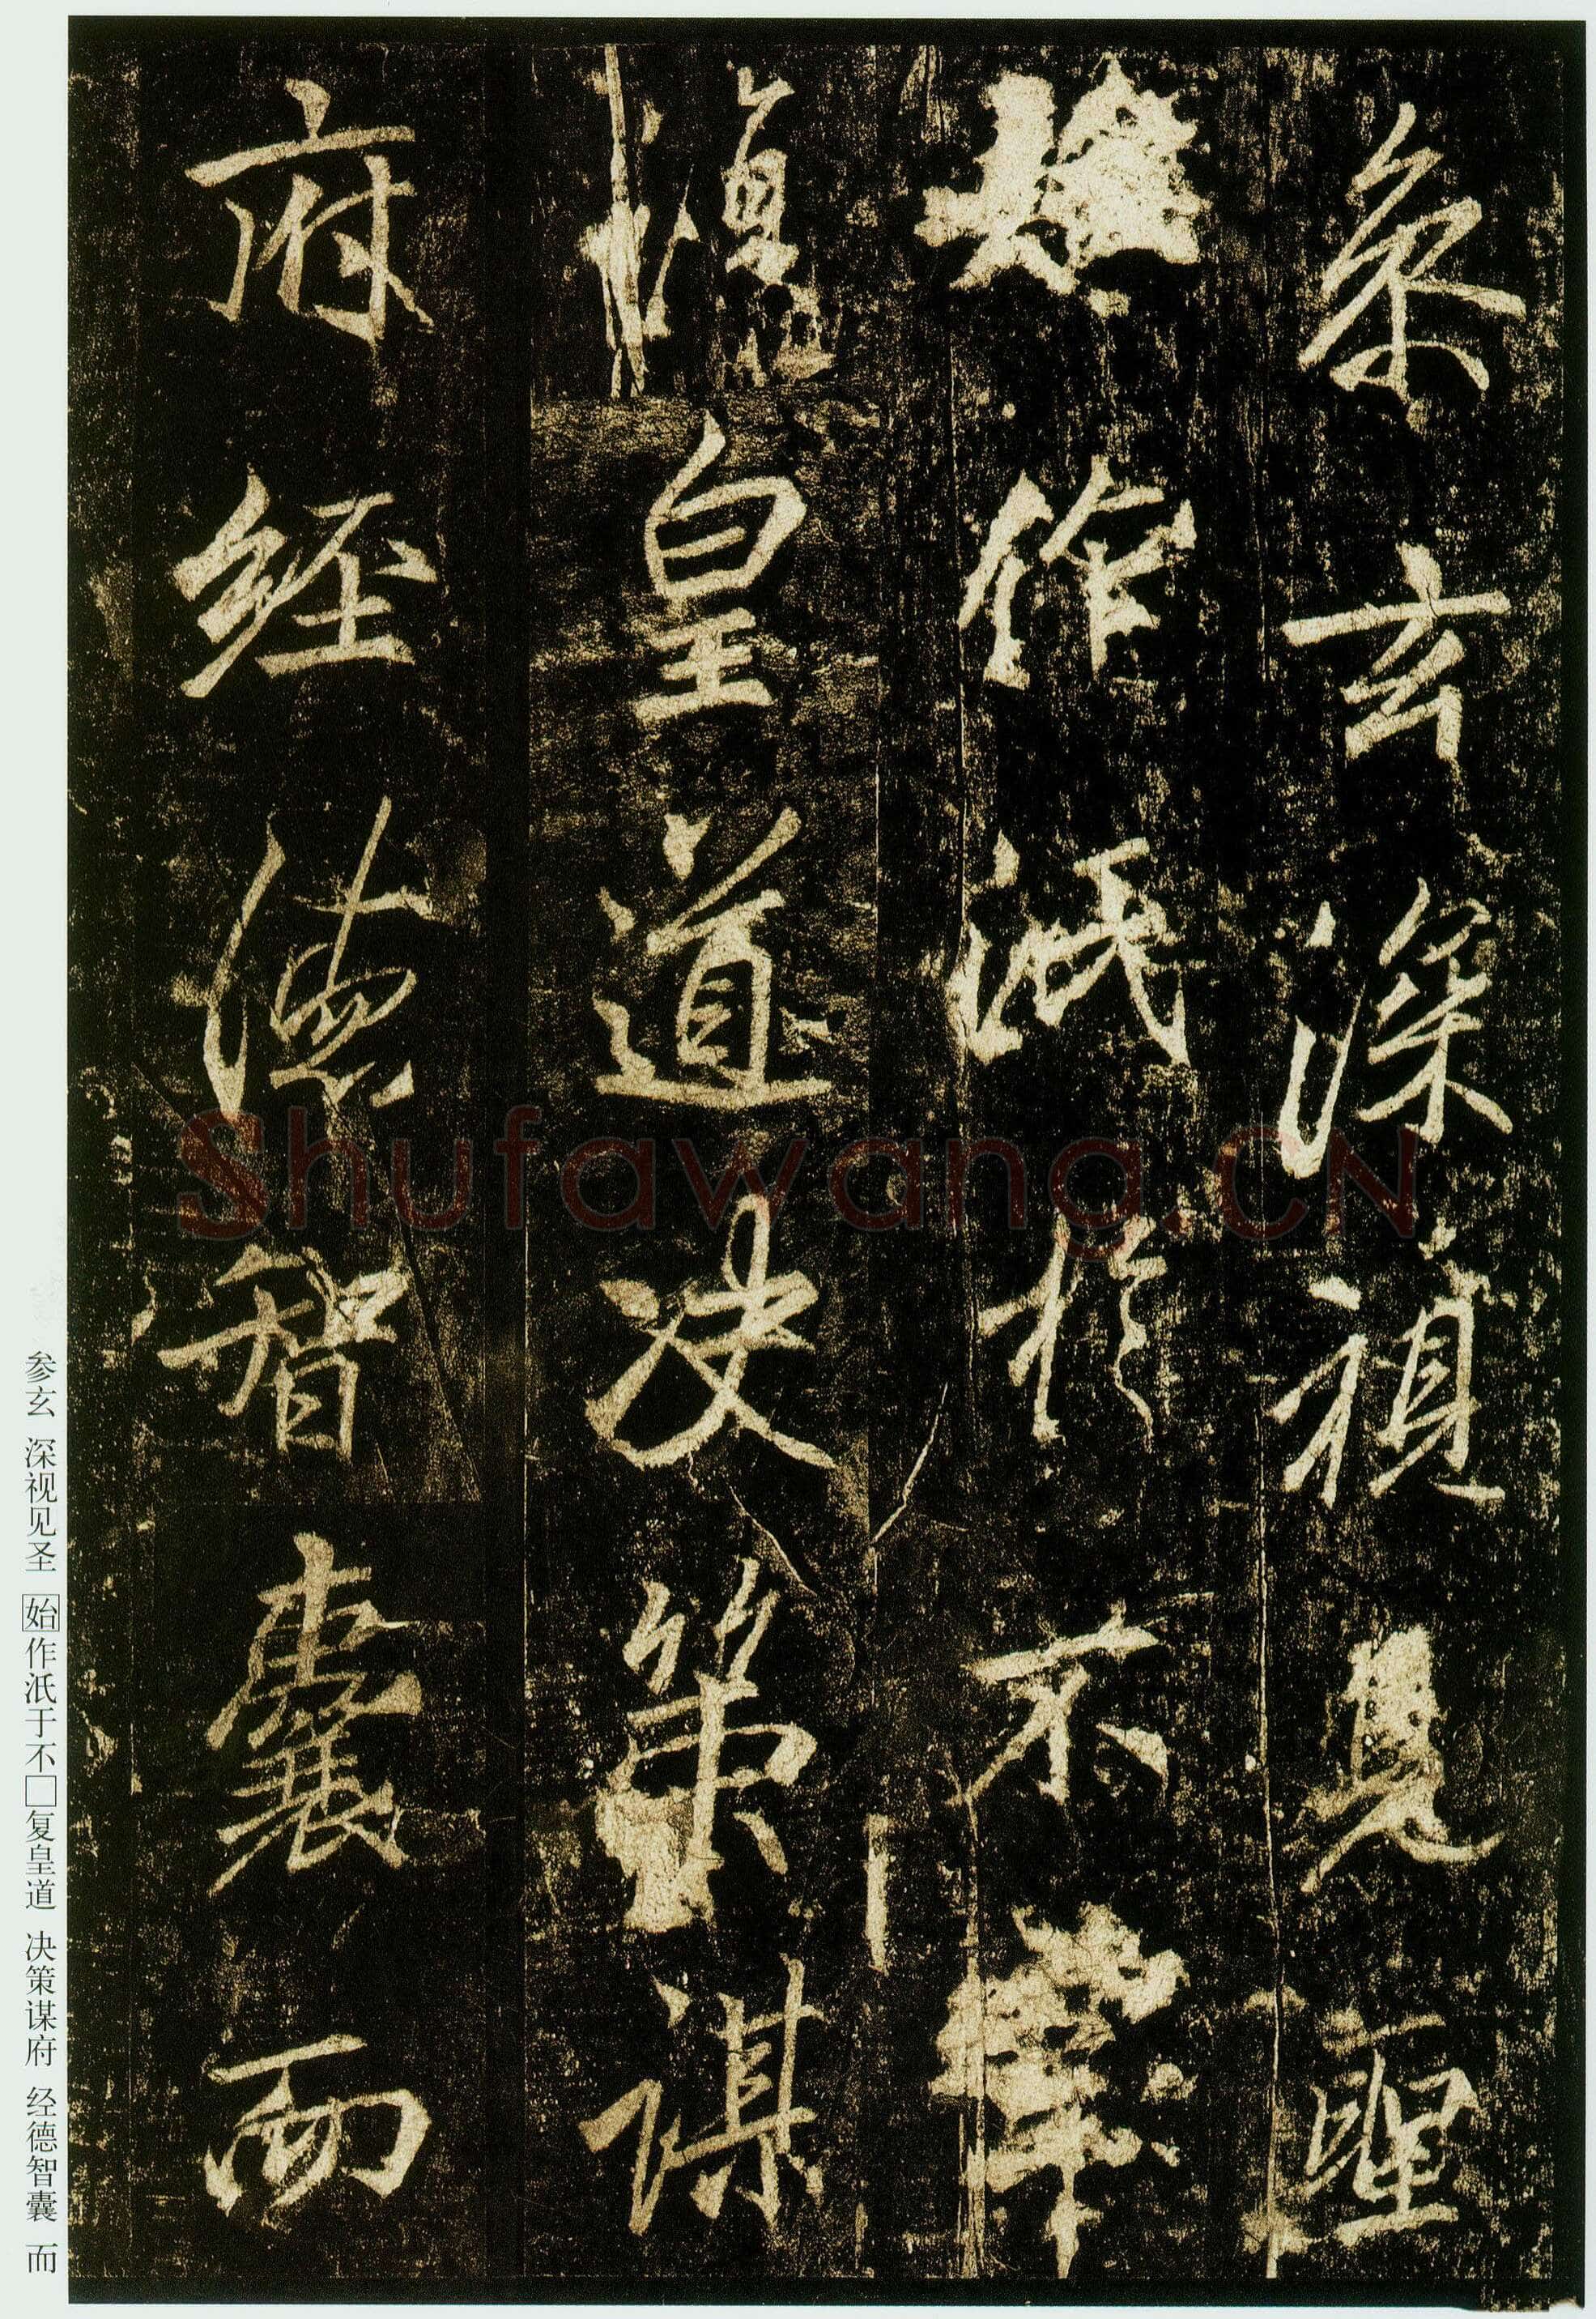 叅玄深禎見聖
作汦於不
復皇道决策謀
府經德智囊而
参玄 深视见圣 始作汦于不□复皇道 决策谋府 经德智囊 而
Shufawang.CN